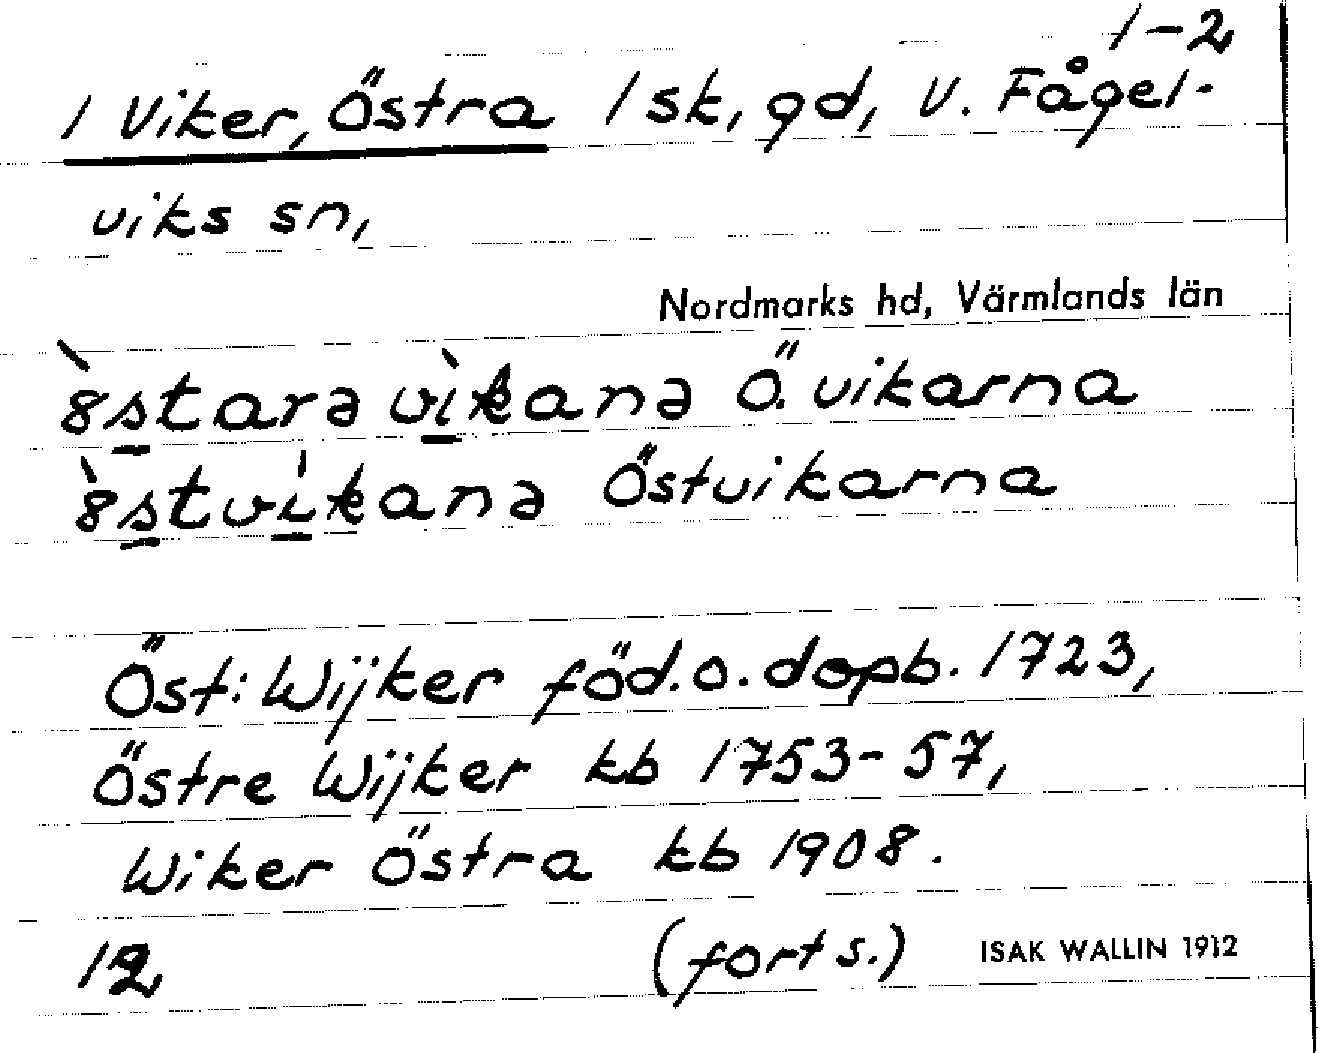 1-2
1 Viker, Östra 1 sk, gd, V. Fågel-
viks sn,
Nordmarks hd, Värmlands län
`8starə vìkanə Ö. vikarna
`8stvikanə Östvikarna
Öst: Wijker föd. o. dopb. 1723,
Östre Wijker kb 1753-57,
Wiker Östra kb 1908.
12 (forts.) ISAK WALLIN 1912